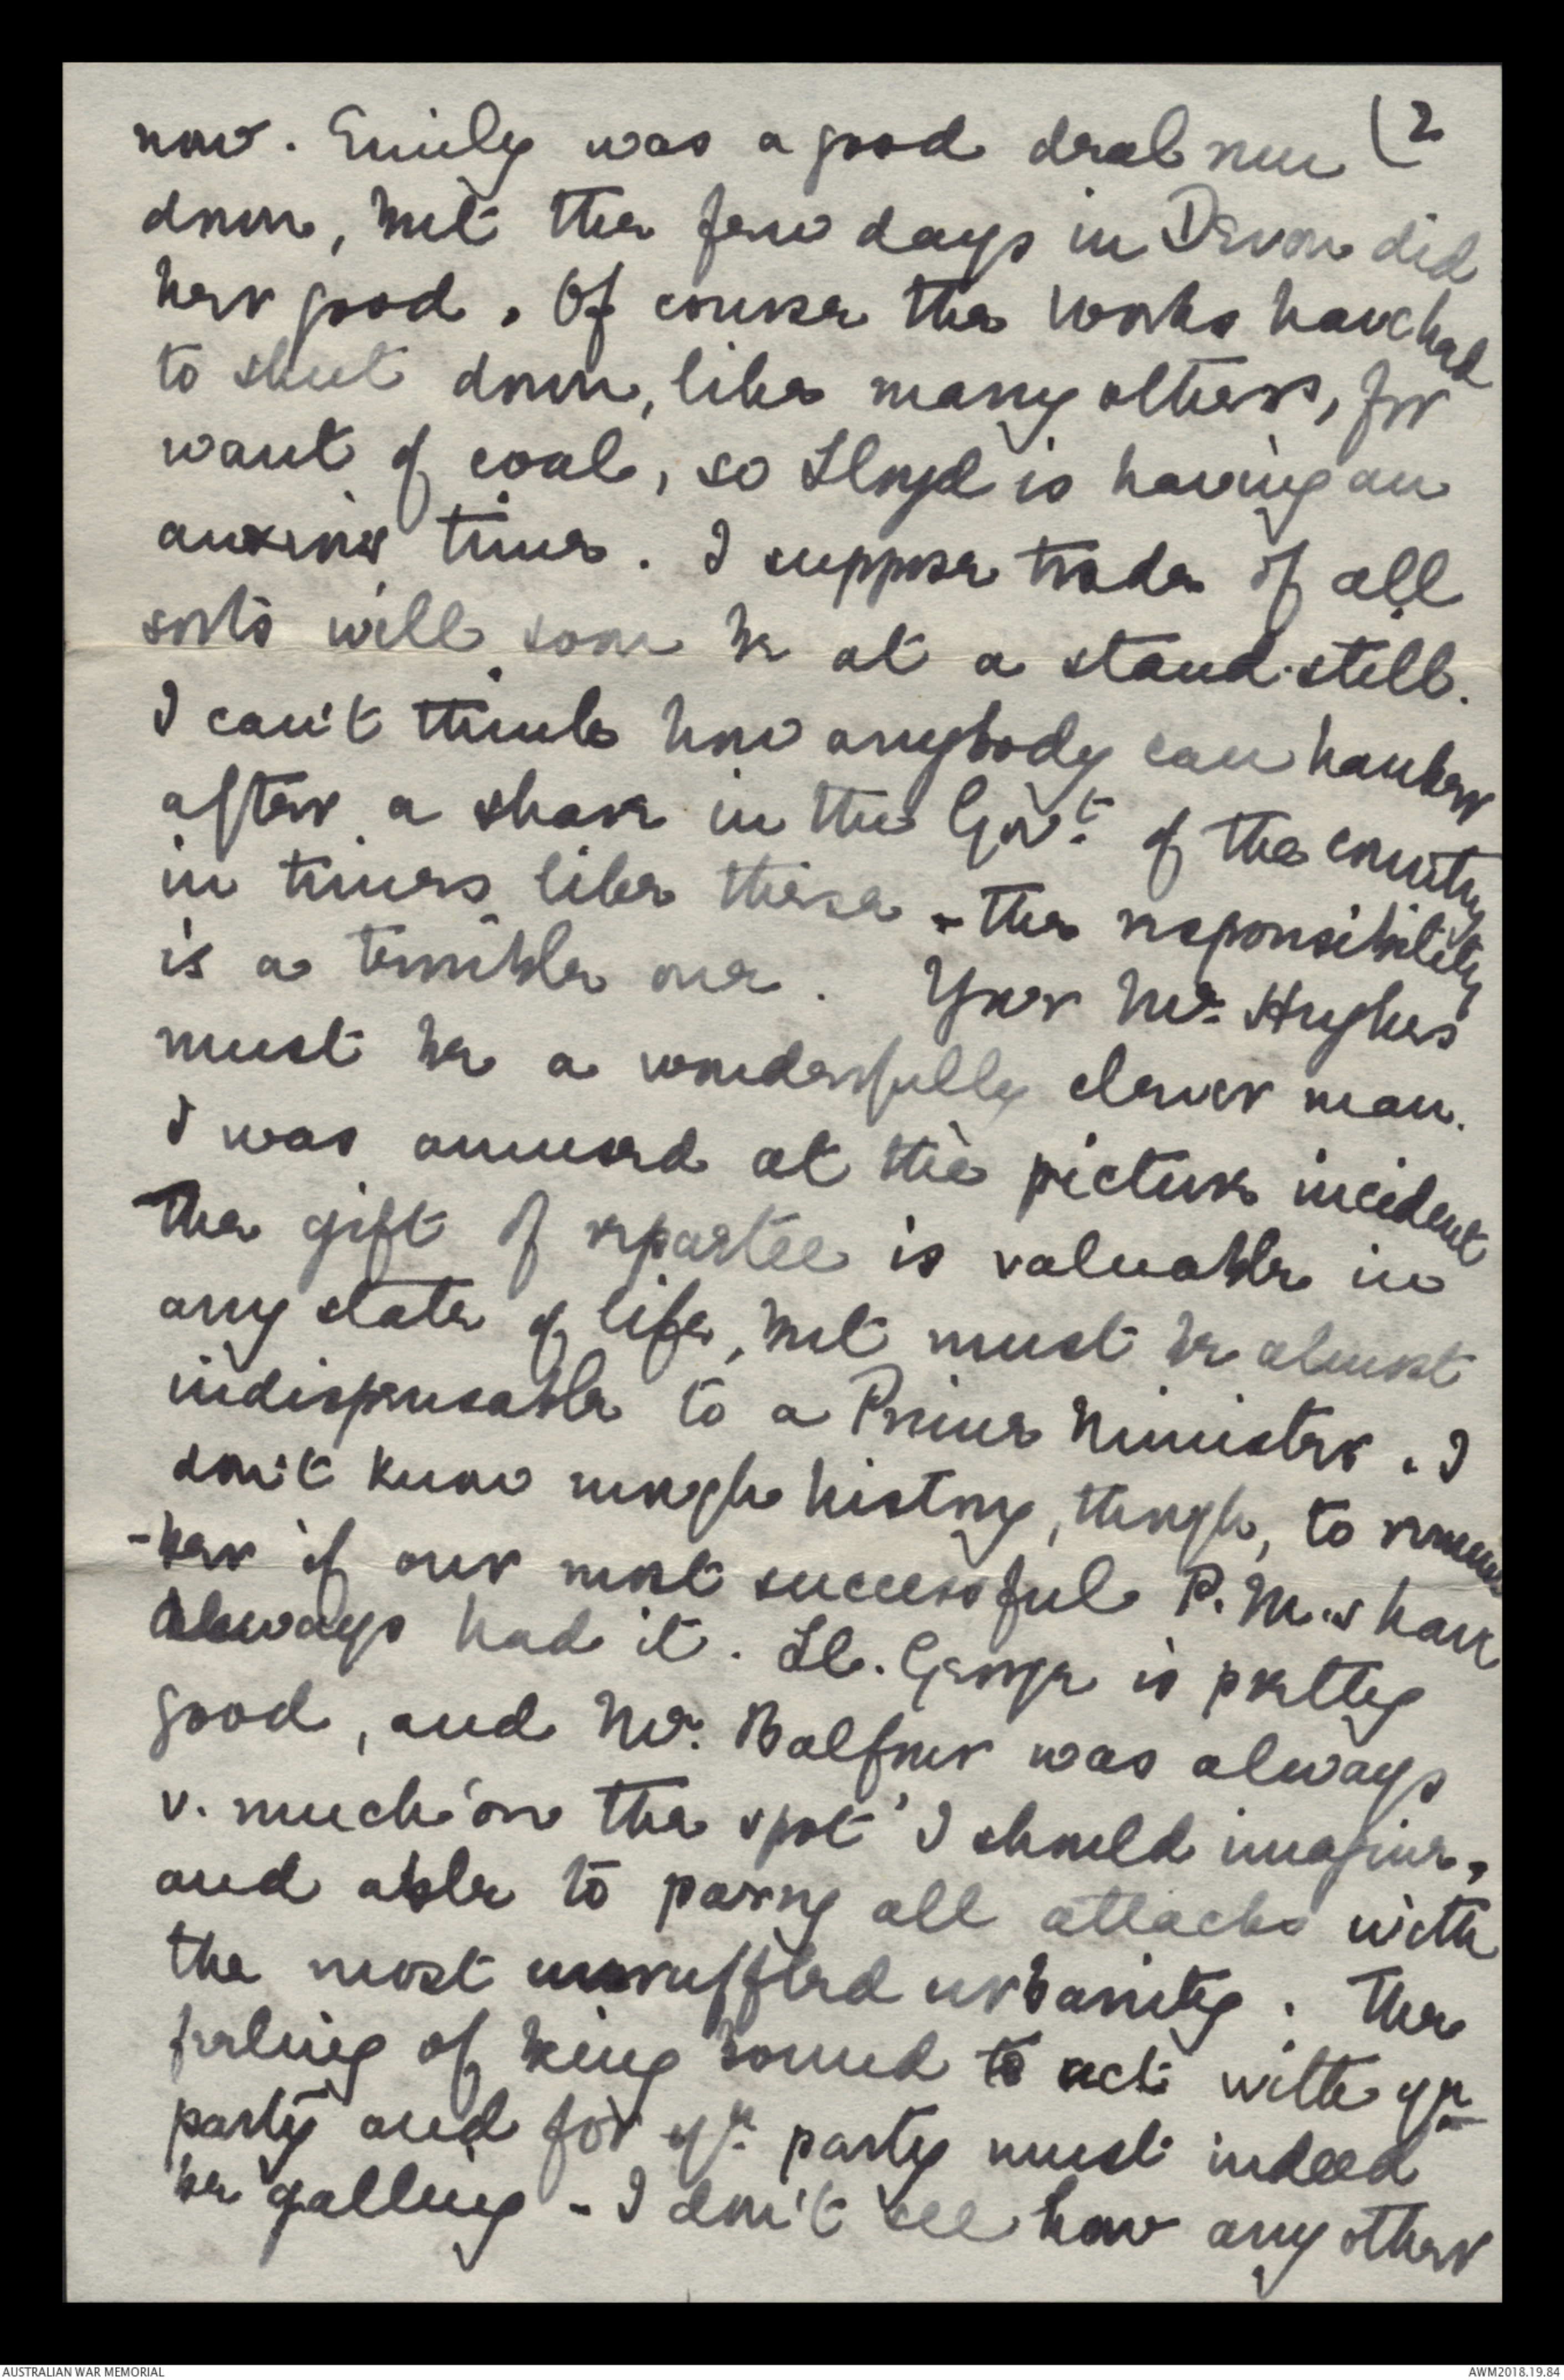 now. Emily was a good deal run (2
down, but the few days in Devon did
her good. Of course the works have had
to shut down, like many others, for
want of coal, so Lloyd is having an
anxious time. I suppose trade of all
sorts will soon be at a stand-still.
I can't think how anybody can hanker
after a share in the Govt. of the country
in times like these - the responsibility
is a terrible one. Your Mr. Hughes
must be a wonderfully clever man.
I was amused at the picture incident
The gift of repartee is valuable in
any state of life, but must be almost
indispensable to a Prime Minister. I
don't know enough history, though, to remem
-ber if our most successful P.M.s have
always had it. Ll. George is pretty
good, and Mr. Balfour was always
v. much 'on the spot' I should imagine,
and able to parry all attacks with
the most unruffled urbanity. The
feeling of being bound to act with yr.
party and for yr. party must indeed
be galling - I don't see how any other
AUSTRALIAN WAR MEMORIAL
AWM2018.19.84